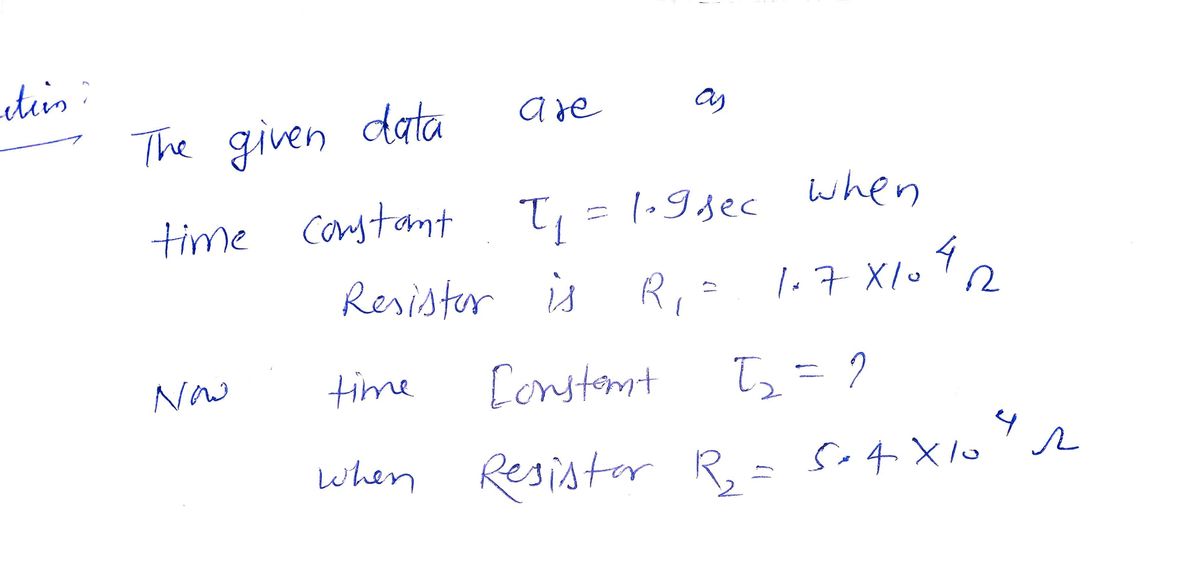 The given data are as
time constant τ₁ = 1.9 sec when
Resistor is R₁ = 1.7 X10⁴ Ω
Now time Constant τ₂ = ?
when Resistor R₂ = 5.4 X10⁴ Ω